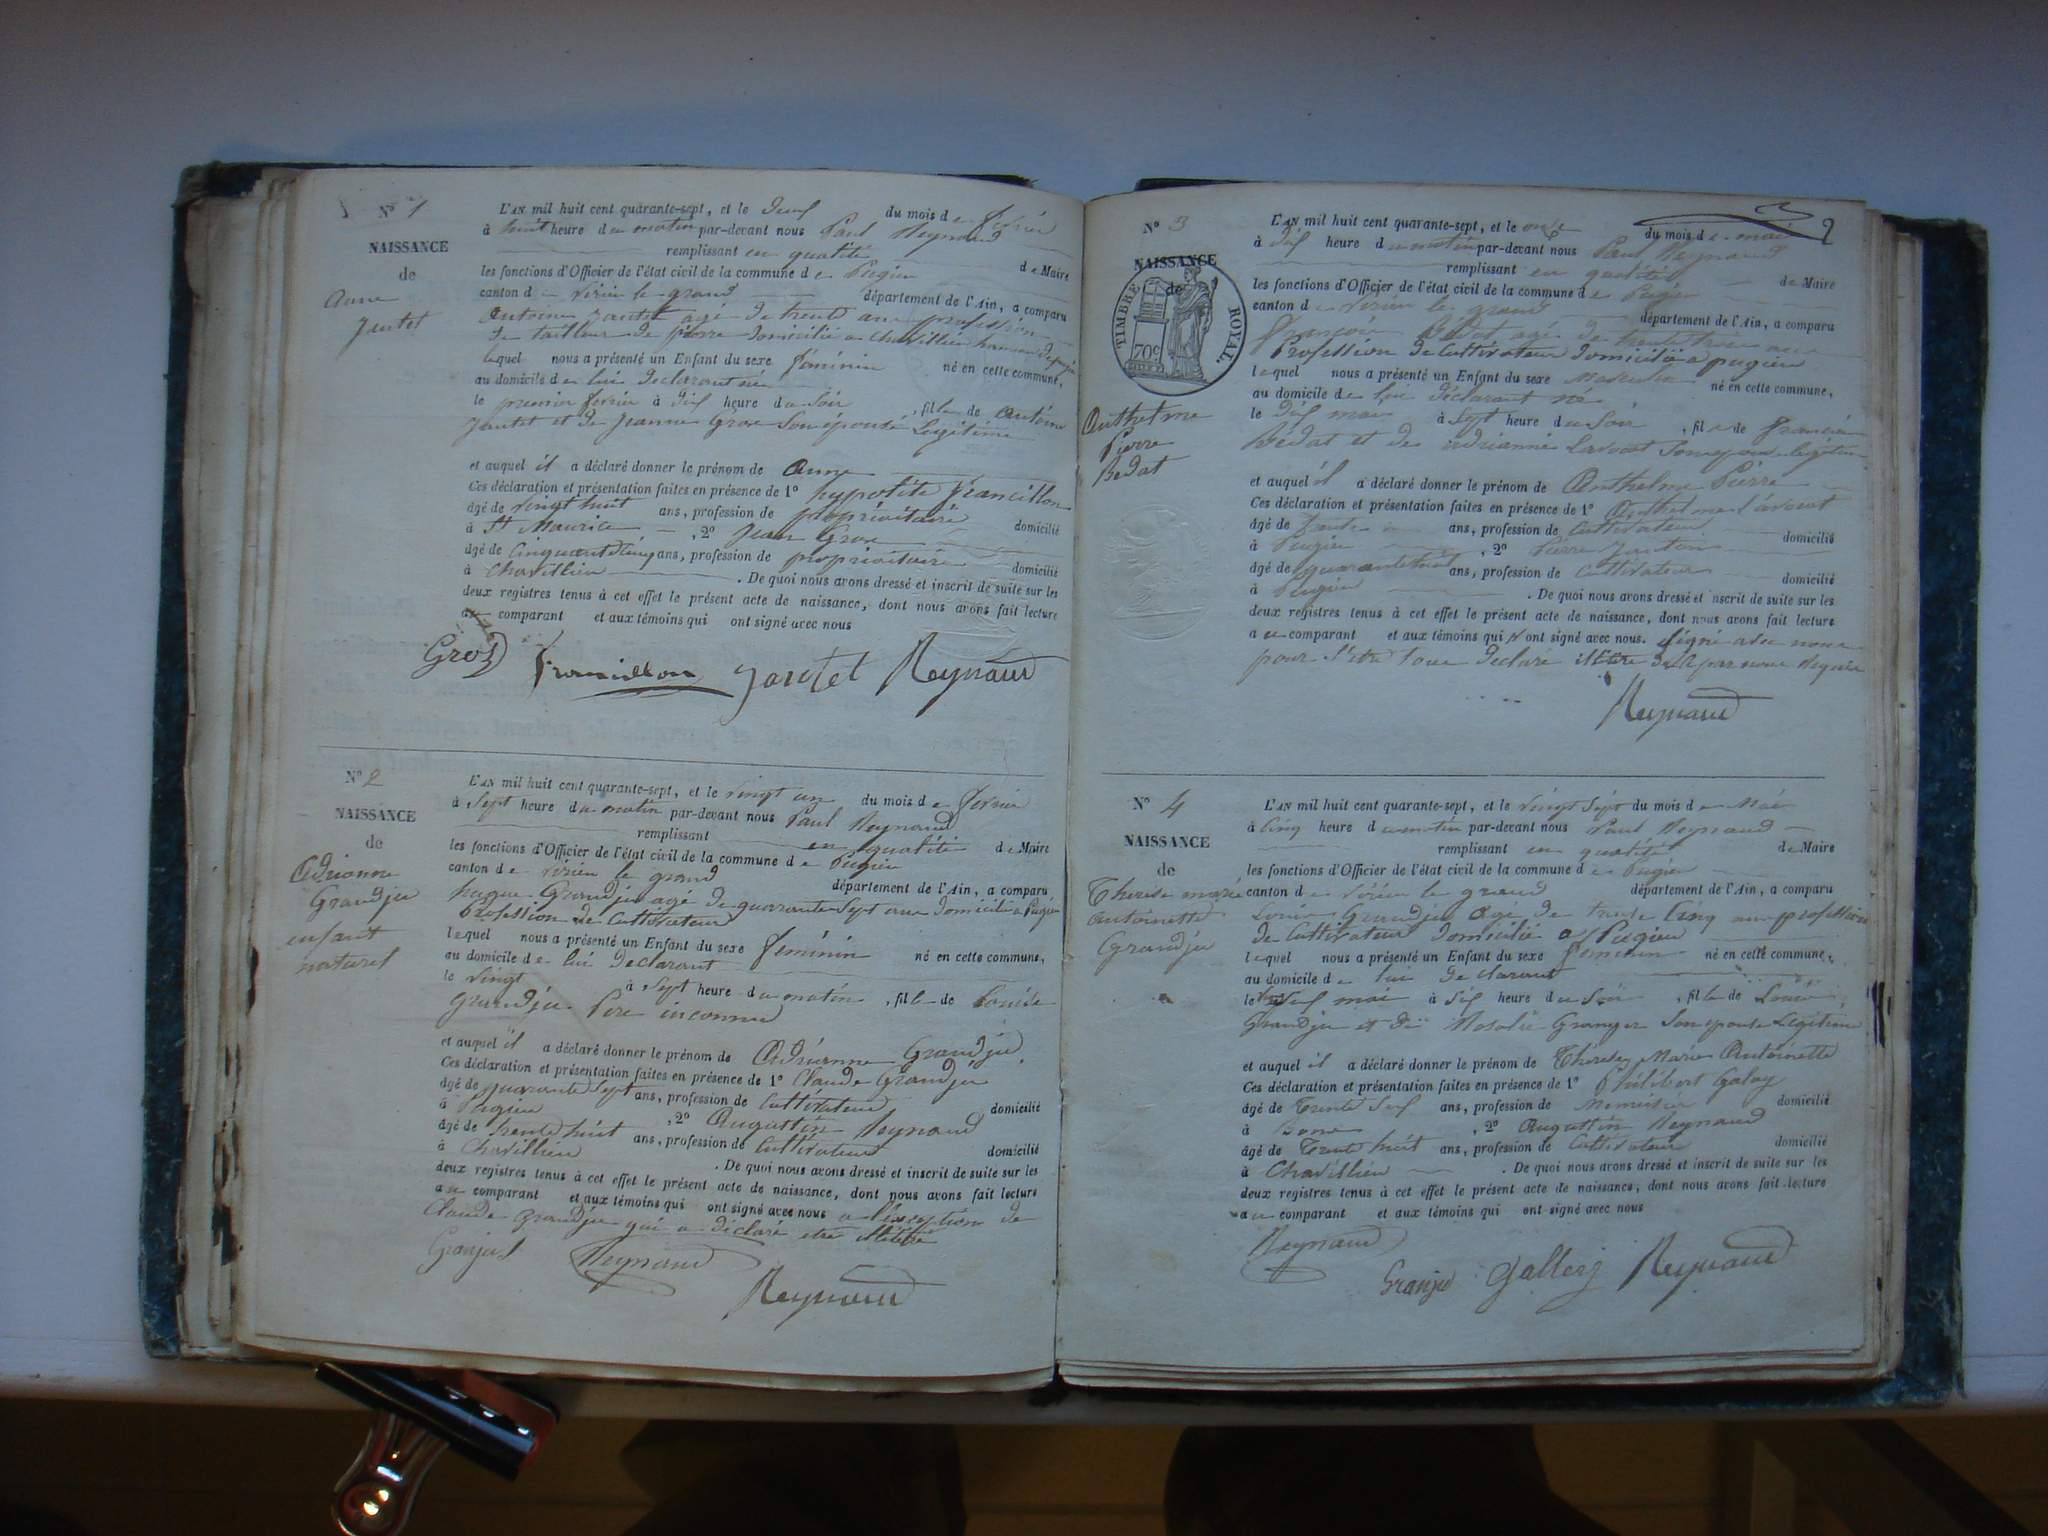 N° 1
NAISSANCE
de
Anne
Jantet
L'AN mil huit cent quarante-sept, et le deux du mois de février
à huit heure du matin par-devant nous Paul Reynaud
remplissant en qualité de Maire
les fonctions d'Officier de l'état civil de la commune de Pugieu
canton de Virieu le grand département de l'Ain, a comparu
Antoine Jantet agé de trente ans profession
de tailleur de pierre domicilié a Chavillieu hameau de pugieu
lequel nous a présenté un Enfant du sexe féminin né en cette commune,
au domicile de lui déclarant née
le premier février à dix heure du soir, fille de Antoine
Jantet et de Jeanne Gros son épouse Légitime
et auquel il a déclaré donner le prénom de Anne
Ces déclaration et présentation faites en présence de 1° hypolite francillon
âgé de vingt huit ans, profession de propriétaire domicilié
à St Maurice, 2° Jean Gros
âgé de Cinquante Cinq ans, profession de propriétaire domicilié
à Chavillieu. De quoi nous avons dressé et inscrit de suite sur les
deux registres tenus à cet effet le présent acte de naissance, dont nous avons fait lecture
au comparant et aux témoins qui ont signé avec nous
Gros francillon Jantet Reynaud
N° 2
NAISSANCE
de
Adrienne
Grandju
enfant
naturel
L'AN mil huit cent quarante-sept, et le vingt un du mois de février
à Sept heure du matin par-devant nous Paul Reynaud
remplissant en qualité de Maire
les fonctions d'Officier de l'état civil de la commune de Pugieu
canton de Virieu le grand département de l'Ain, a comparu
hugue Grandju agé de quarante Sept ans domicilié a Pugieu
Profession de Cultivateur
lequel nous a présenté un Enfant du sexe féminin né en cette commune,
au domicile de lui déclarant
le vingt à Sept heure du matin, fille de Louise
Grandju Père inconnu
et auquel il a déclaré donner le prénom de Adrienne Grandju
Ces déclaration et présentation faites en présence de 1° Claude Grandju
âgé de quarante Sept ans, profession de Cultivateur domicilié
à Pugieu, 2° Augustin Reynaud
âgé de trente huit ans, profession de Cultivateur domicilié
à Chavillieu. De quoi nous avons dressé et inscrit de suite sur les
deux registres tenus à cet effet le présent acte de naissance, dont nous avons fait lecture
au comparant et aux témoins qui ont signé avec nous a l'exception de
Claude Grandju qui a déclaré etre illétré
Granju Reynaud
Reynaud
2
N° 3
NAISSANCE
de
TIMBRE ROYAL.
70c
Anthelme
Pierre
Bedat
L'AN mil huit cent quarante-sept, et le onze du mois de mai
à dix heure du matin par-devant nous Paul Reynaud
remplissant en qualité de Maire
les fonctions d'Officier de l'état civil de la commune de Pugieu
canton de Virieu le grand département de l'Ain, a comparu
François Bedat agé de trente trois ans
Profession de Cultivateur domicilié a pugieu
lequel nous a présenté un Enfant du sexe Masculin né en cette commune,
au domicile de lui déclarant né
le dix mai à Sept heure du Soir, fils de François
Bedat et de adrianne Lavout Son epouse légitime
et auquel il a déclaré donner le prénom de Anthelme Pierre
Ces déclaration et présentation faites en présence de 1° Anthelme Lavout
âgé de ans, profession de Cultivateur domicilié
à Pugieu, 2° Pierre
âgé de quarante huit ans, profession de Cultivateur domicilié
à Pugieu. De quoi nous avons dressé et inscrit de suite sur les
deux registres tenus à cet effet le présent acte de naissance, dont nous avons fait lecture
au comparant et aux témoins qui n'ont signé avec nous. signé avec nous
pour etre tous déclaré illétré de ce par nous requis
Reynaud
N° 4
NAISSANCE
de
Therese marie
antoinette
Grandju
L'AN mil huit cent quarante-sept, et le vingt Sept du mois de Mai
à Cinq heure du matin par-devant nous Paul Reynaud
remplissant en qualité de Maire
les fonctions d'Officier de l'état civil de la commune de Pugieu
canton de Virieu le grand département de l'Ain, a comparu
Louis Grandju agé de trente Cinq ans profession
de Cultivateur domicilié a Pugieu
lequel nous a présenté un Enfant du sexe féminin né en cette commune,
au domicile de lui declarant
le mai à Six heure du Soir, fille de Louis
Grandju et de Rosalie Granger Son epouse Légitime
et auquel il a déclaré donner le prénom de Thérèse Marie Antoinette
Ces déclaration et présentation faites en présence de 1° Philibert Galay
âgé de Trente ans, profession de Menuisier domicilié
à, 2° Augustin Reynaud
âgé de Trente huit ans, profession de Cultivateur domicilié
à Chavillieu. De quoi nous avons dressé et inscrit de suite sur les
deux registres tenus à cet effet le présent acte de naissance, dont nous avons fait lecture
au comparant et aux témoins qui ont signé avec nous
Reynaud
Granju Galley Reynaud